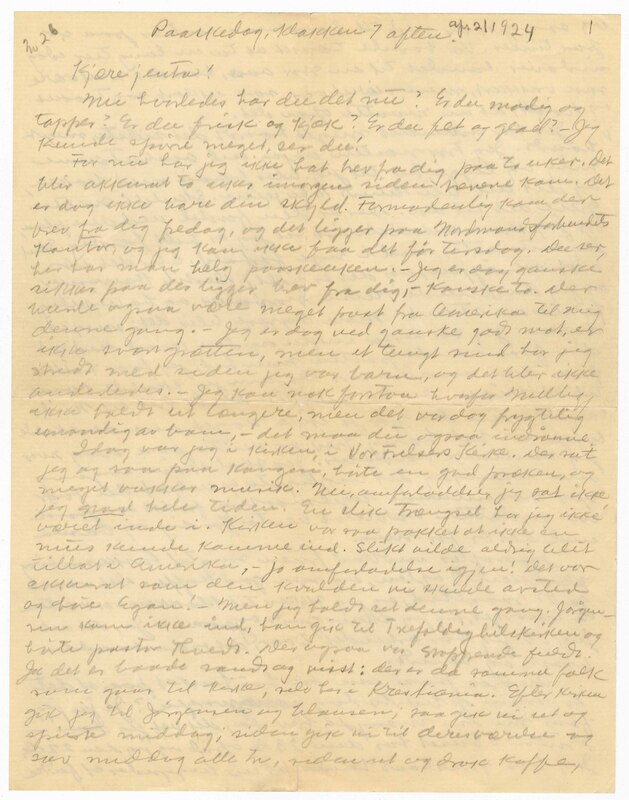 No 26
Paaskedag, klokken 7 aften. apr. 21 1924 1
Kjære jenta!
Nu hvorledes har du det nu? Er du modig og
tapper? Er du frisk og kjæk? Er du fet og glad? – Jeg
kunde spørre meget, ser du!
For nu har jeg ikke hat brev fra dig paa to uker. Det
blir akkurat to uker imorgen siden brevene kom. Det
er dog ikke bare din skyld. Formodentlig kom der
brev fra dig fredag, og det ligger paa Nordmandsforbundets
Kontor, og jeg kan ikke faa det før tirsdag. Du ser,
her har man helg paaskeuken. – Jeg er dog ganske
sikker paa der ligger brev fra dig, – kanske to. Der
burde ogsaa være meget post fra Amerika til mig
denne gang. – Jeg er dog ved ganske godt mot, er
ikke svært graatten, men et tungt sind har jeg
stridt med siden jeg var barn, og det blir ikke
anderledes. – Jeg kan nok forstaa hvorfor
ikke holdt ut længere, men det var dog frygtelig
umandig av ham, – det maa du ogsaa indrømme.
Idag var jeg i kirken, i Vor Frelsers Kirke. Der sat
jeg og saa paa kongen, hørte en god præken, og
meget vakker musik. Nu, omforladelse, jeg sat ikke
jeg stod hele tiden. En slik trængsel har jeg ikke
været inde i. Kirken var saa pakket at ikke en
mus kunde komme ind. Slikt vilde aldrig blit
tillat i Amerika, – jo omforladelse igjen! det var
akkurat som den kvelden vi skulde avsted
og høre Egan! – Men jeg holdt ut denne gang. Jørgen-
sen kom ikke ind, han gik til Trefoldighetskirken og
hørte pastor Hvedt. Der ogsaa var stoppende fuldt.
Ja det er baade sandt og visst: der er da somme folk
som gaar til kirke, selv her i Kristiania. Efter kirken
gik jeg til Jørgensen og Clausen, saa gik vi ut og
spiste middag, siden gik vi til deres værelse og
sov middag alle tre, siden ut og drak kaffe,